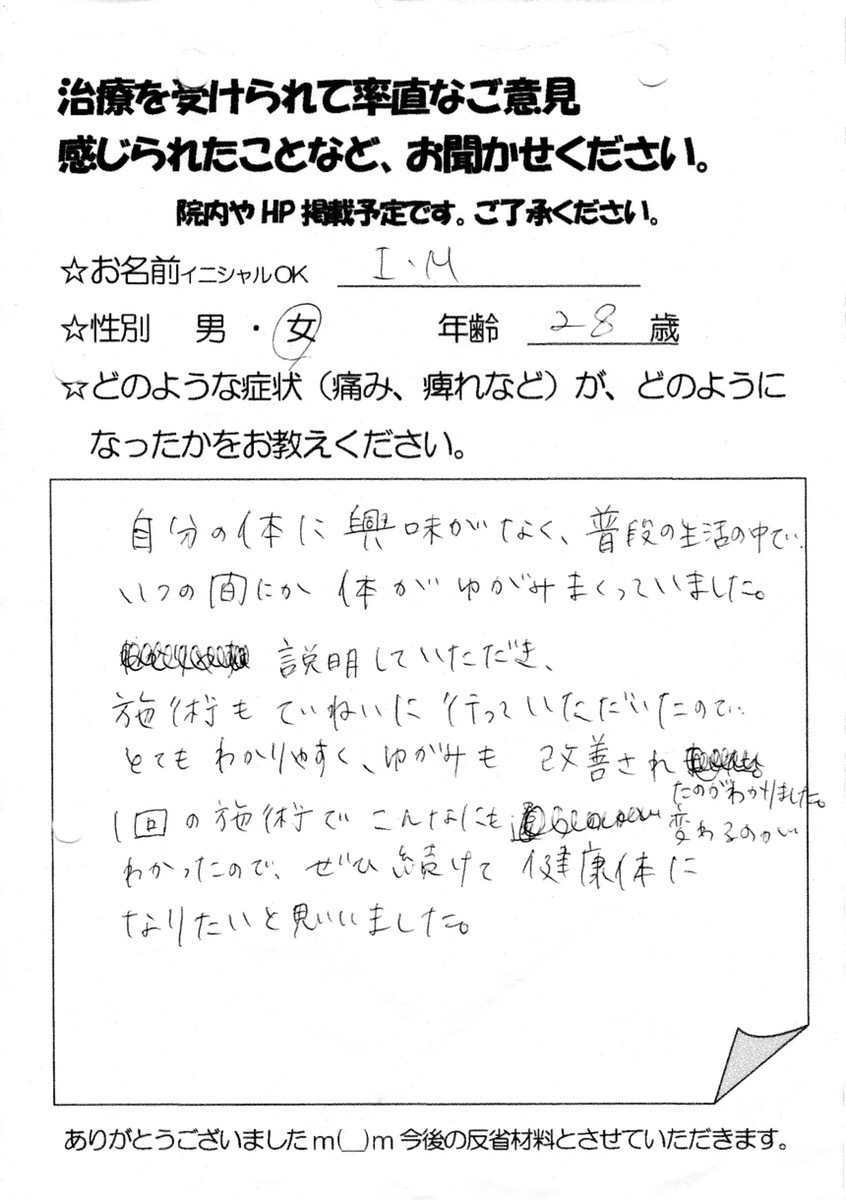 治療を受けられて率直なご意見
感じられたことなど、お聞かせください。
院内やHP掲載予定です。ご了承ください。
☆お名前イニシャルOK I・M
☆性別 男・女 年齢 28 歳
☆どのような症状（痛み、痺れなど）が、どのように
なったかをお教えください。
自分の体に興味がなく、普段の生活の中で
いつの間にか体がゆがみまくっていました。
説明していただき、
施術もていねいに行っていただいたので
とてもわかりやすく、ゆがみも改善され
たのがわかりました。
1回の施術でこんなにも変わるのが
わかったので、ぜひ続けて健康体に
なりたいと思いいました。
ありがとうございましたm(__)m今後の反省材料とさせていただきます。